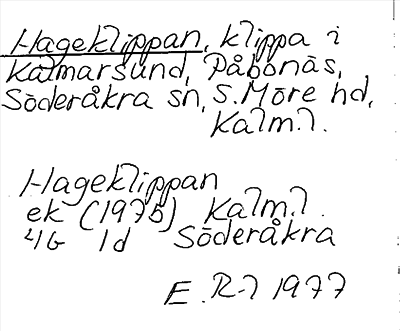 Hageklippan, klippa i
Kalmarsund, Påbonäs,
Söderåkra sn, S. Möre hd,
Kalm.l.
Hageklippan
ek (1975) Kalm.l.
4G 1d Söderåkra
E. R-l 1977